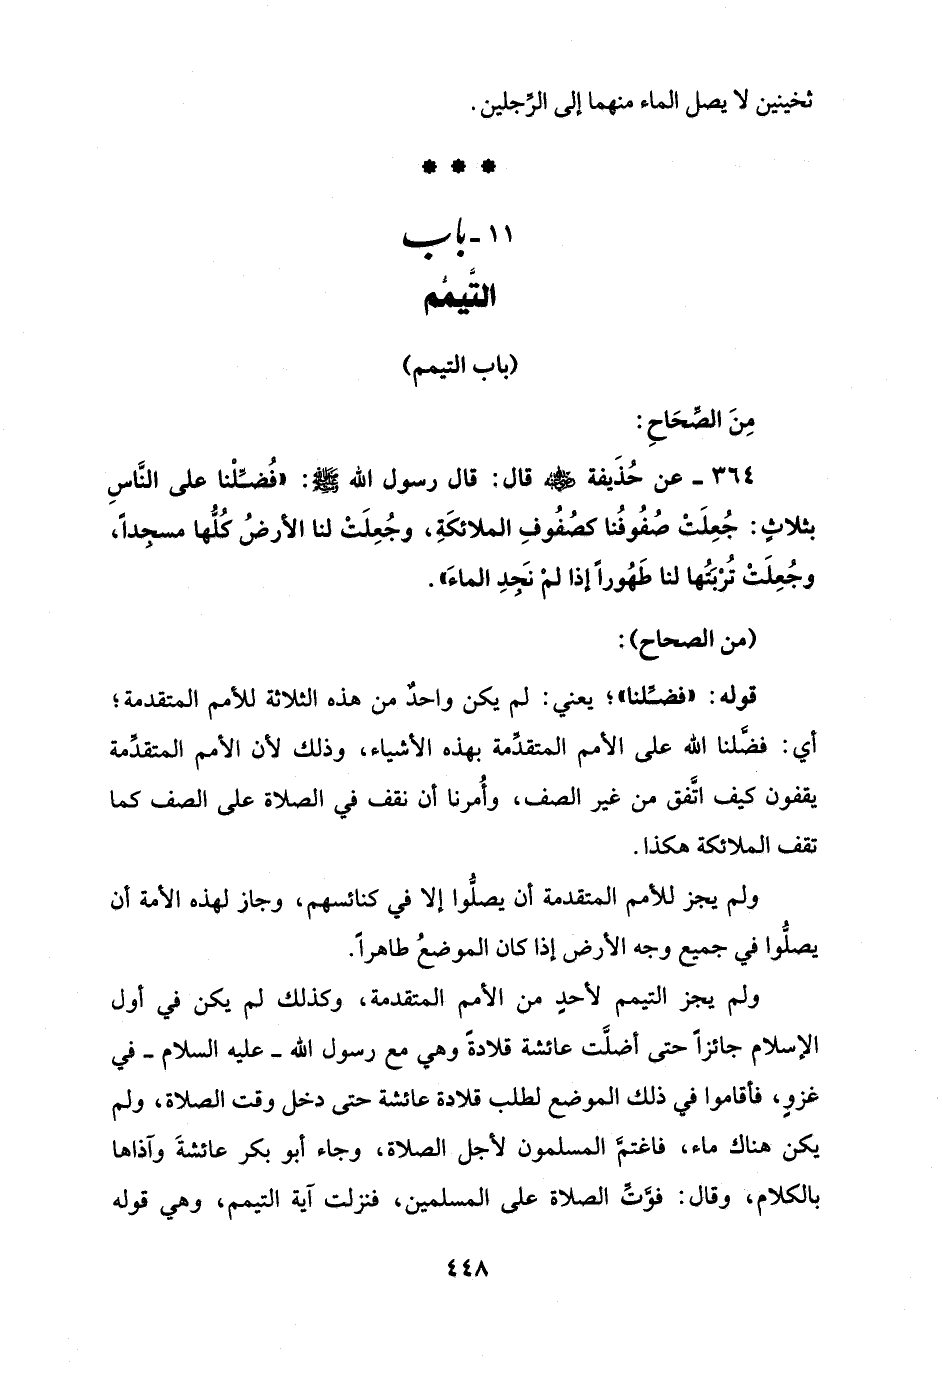 ثخينين لا يصل الماء منهما إلى الرِّجلين.
* * *
١١ - باب
التَّيمُّم
(باب التيمم)
مِنَ الصِّحَاحِ:
٣٦٤ - عن حُذَيفة رضي الله عنه قال: قال رسول الله ﷺ: «فُضِّلْنا على النَّاسِ
بثلاثٍ: جُعِلَتْ صُفُوفُنا كصُفُوفِ الملائكَةِ، وجُعِلَتْ لنا الأرضُ كُلُّها مسجِداً،
وجُعِلَتْ تُرْبَتُها لنا طَهُوراً إذا لمْ نَجِدِ الماءَ».
(من الصحاح):
قوله: «فضِّلنا»؛ يعني: لم يكن واحدٌ من هذه الثلاثة للأمم المتقدمة؛
أي: فضَّلنا الله على الأمم المتقدِّمة بهذه الأشياء، وذلك لأن الأمم المتقدِّمة
يقفون كيف اتَّفق من غير الصف، وأُمرنا أن نقف في الصلاة على الصف كما
تقف الملائكة هكذا.
ولم يجز للأمم المتقدمة أن يصلُّوا إلا في كنائسهم، وجاز لهذه الأمة أن
يصلُّوا في جميع وجه الأرض إذا كان الموضعُ طاهراً.
ولم يجز التيمم لأحدٍ من الأمم المتقدمة، وكذلك لم يكن في أول
الإسلام جائزاً حتى أضلَّت عائشة قلادةً وهي مع رسول الله - عليه السلام - في
غزوٍ، فأقاموا في ذلك الموضع لطلب قلادة عائشة حتى دخل وقت الصلاة، ولم
يكن هناك ماء، فاغتمَّ المسلمون لأجل الصلاة، وجاء أبو بكر عائشةَ وآذاها
بالكلام، وقال: فوَّتِّ الصلاة على المسلمين، فنزلت آية التيمم، وهي قوله
٤٤٨